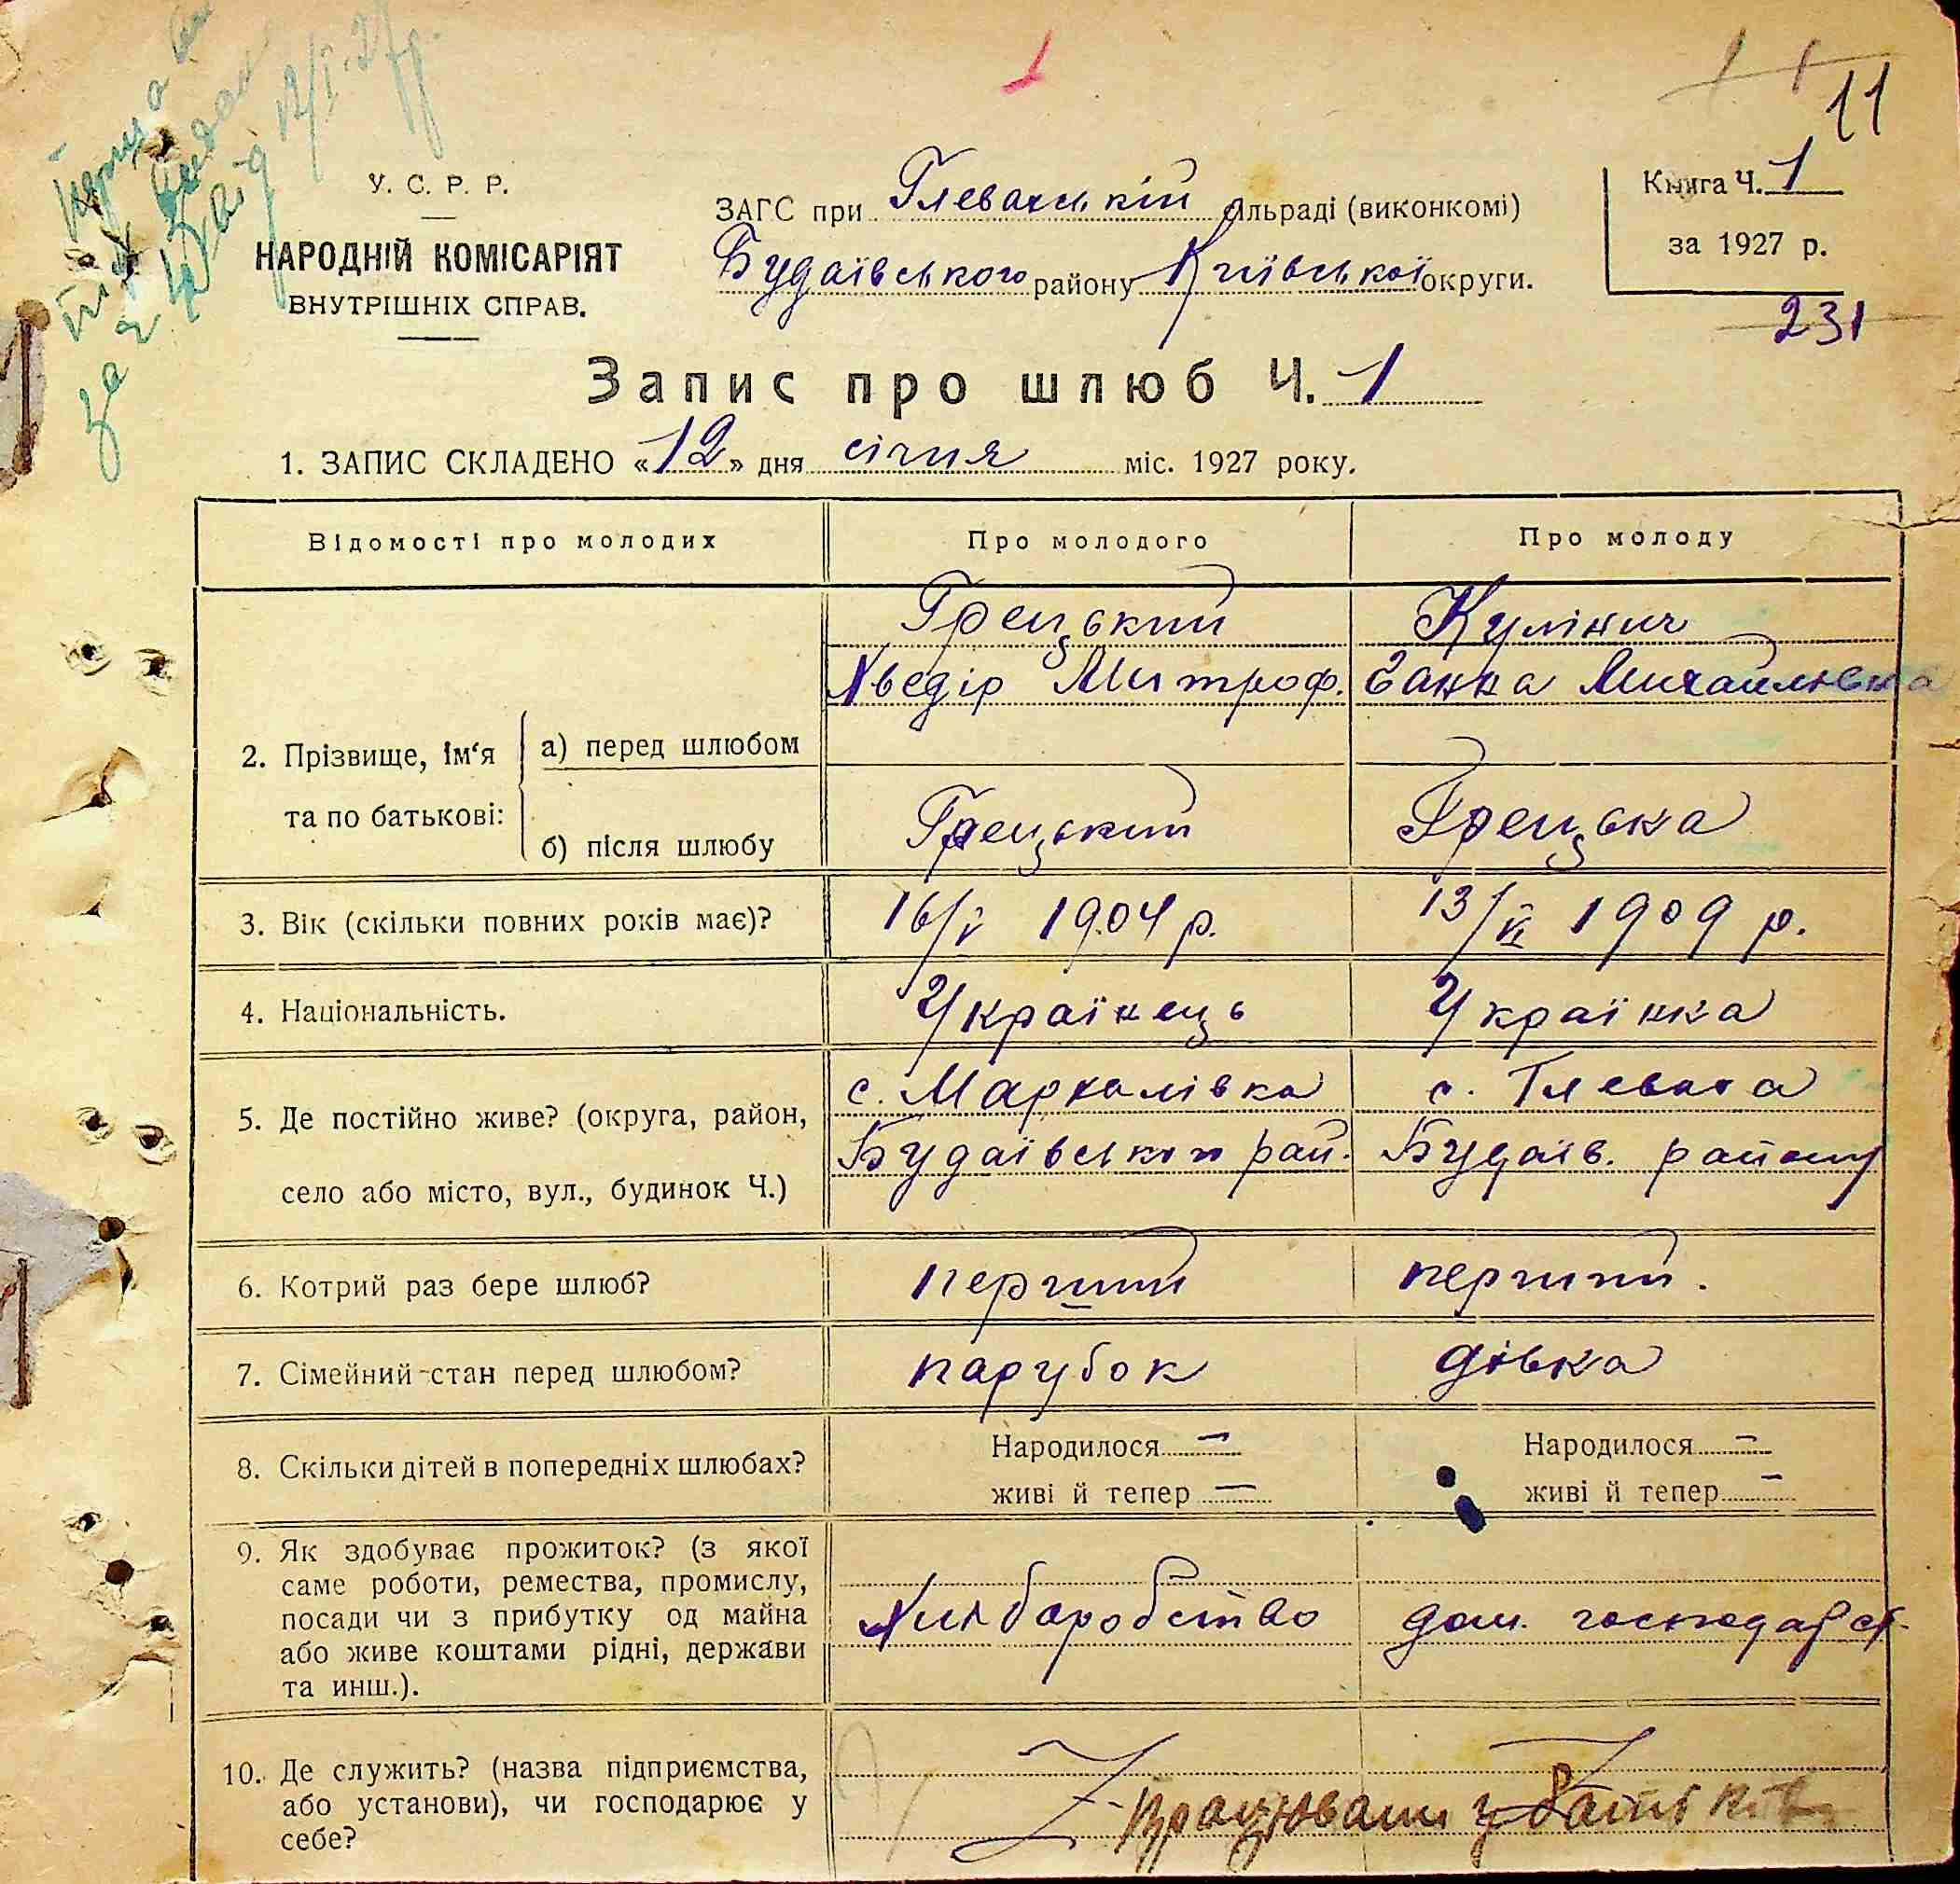 1
11
У. С. Р. Р.
НАРОДНІЙ КОМІСАРІЯТ
ВНУТРІШНІХ СПРАВ.
ЗАГС при Глевахській сільраді (виконкомі)
Будаївського району Київської округи.
Книга Ч. 1
за 1927 р.
231
Запис про шлюб Ч. 1
1. ЗАПИС СКЛАДЕНО «12» дня січня міс. 1927 року.
Відомості про молодих Про молодого Про молоду
2. Прізвище, ім'я та по батькові:
а) перед шлюбом
Грецький
Хведір Митроф.
Кулінич
Ганна Михайлівна
б) після шлюбу Грецький Грецька
3. Вік (скільки повних років має)? 16/V 1904 р. 13/VI 1909 р.
4. Національність. Українець Українка
5. Де постійно живе? (округа, район,
село або місто, вул., будинок Ч.)
с. Мархалівка
Будаївського рай.
с. Глеваха
Будаїв. району
6. Котрий раз бере шлюб? перший перший.
7. Сімейний стан перед шлюбом? парубок дівка
8. Скільки дітей в попередніх шлюбах?
Народилося —
живі й тепер —
Народилося —
живі й тепер —
9. Як здобуває прожиток? (з якої
саме роботи, ремества, промислу,
посади чи з прибутку од майна
або живе коштами рідні, держави
та инш.).
Хліборобство
дом. господарст.
10. Де служить? (назва підприємства,
або установи), чи господарює у
себе?
Працювали у батьків